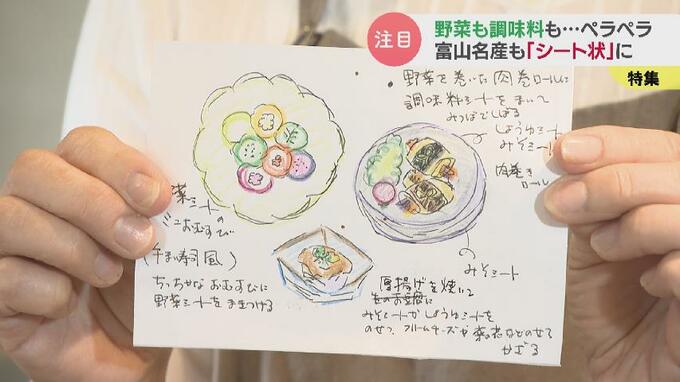 注目
野菜も調味料も…ペラペラ
富山名産も「シート状」に
特集
野菜を巻いた肉巻ロールに
調味料シートをまいて
みつばでしばる
しょうゆシート
みそシート
肉巻き
ロール
菜シート
の
ミニおむすび
(手まり寿司風)
ちっちゃなおむすびに
野菜シートをまきつける
みそシート
厚揚げを焼いて
みそシートかしょうゆシートを
のせて、クリームチーズや
かざる